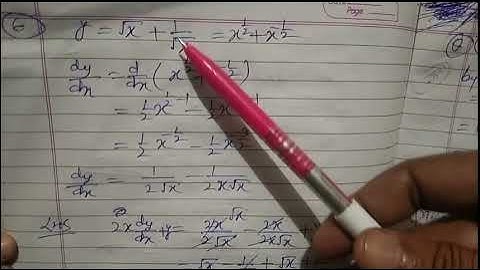 Page
6 y = √x + 1/√x = x^{1/2} + x^{-1/2}
dy/dx = d/dx ( x^{1/2} + x^{-1/2} )
= 1/2 x^{1/2 - 1} - 1/2 x
= 1/2 x^{-1/2} - 1/2 x^{-3/2}
dy/dx = 1/2√x - 1/2x√x
LHS 2x dy/dx + y = 2x/2√x - 2x/2x√x +
= √x - 1/√x + √x +